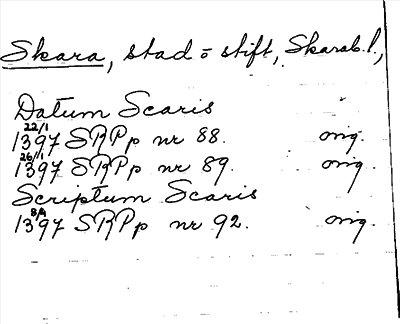 Skara, stad o stift, Skarab.l.,
Datum Scaris
22/1
1397 SRPp nr 88. orig.
26/1
1397 SRPp nr 89. orig.
Scriptum Scaris
1397 SRPp nr 92. orig.